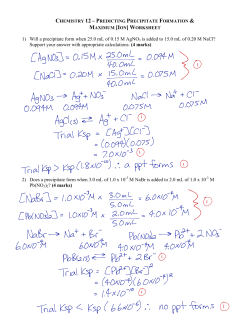 CHEMISTRY 12 – PREDICTING PRECIPITATE FORMATION &
MAXIMUM [ION] WORKSHEET
1) Will a precipitate form when 25.0 mL of 0.15 M AgNO₃ is added to 15.0 mL of 0.20 M NaCl?
Support your answer with appropriate calculations. (4 marks)
[AgNO₃] = 0.15M x 25.0mL/40.0mL = 0.094M
[NaCl] = 0.20M x 15.0mL/40.0mL = 0.075M ①
AgNO₃ → Ag⁺ + NO₃⁻ NaCl → Na⁺ + Cl⁻
0.094M 0.094M 0.075M 0.075M
AgCl(s) ⇌ Ag⁺ + Cl⁻ ①
Trial Ksp = [Ag⁺][Cl⁻]
= (0.094)(0.075)
= 7.0×10⁻³ ①
Trial Ksp > Ksp (1.8×10⁻¹⁰) ∴ a ppt forms ①
2) Does a precipitate form when 3.0 mL of 1.0 x 10⁻³ M NaBr is added to 2.0 mL of 1.0 x 10⁻³ M
Pb(NO₃)₂? (4 marks)
[NaBr] = 1.0×10⁻³M x 3.0mL/5.0mL = 6.0×10⁻⁴M
[Pb(NO₃)₂] = 1.0×10⁻³M x 2.0mL/5.0mL = 4.0×10⁻⁴M ①
NaBr → Na⁺ + Br⁻ Pb(NO₃)₂ → Pb²⁺ + 2NO₃⁻
6.0×10⁻⁴M 6.0×10⁻⁴M 4.0×10⁻⁴M 4.0×10⁻⁴M
PbBr₂(s) ⇌ Pb²⁺ + 2Br⁻ ①
Trial Ksp = [Pb²⁺][Br⁻]²
= (4.0×10⁻⁴)(6.0×10⁻⁴)²
= 1.4×10⁻¹⁰ ①
Trial Ksp < Ksp (6.6×10⁻⁶) ∴ no ppt forms ①